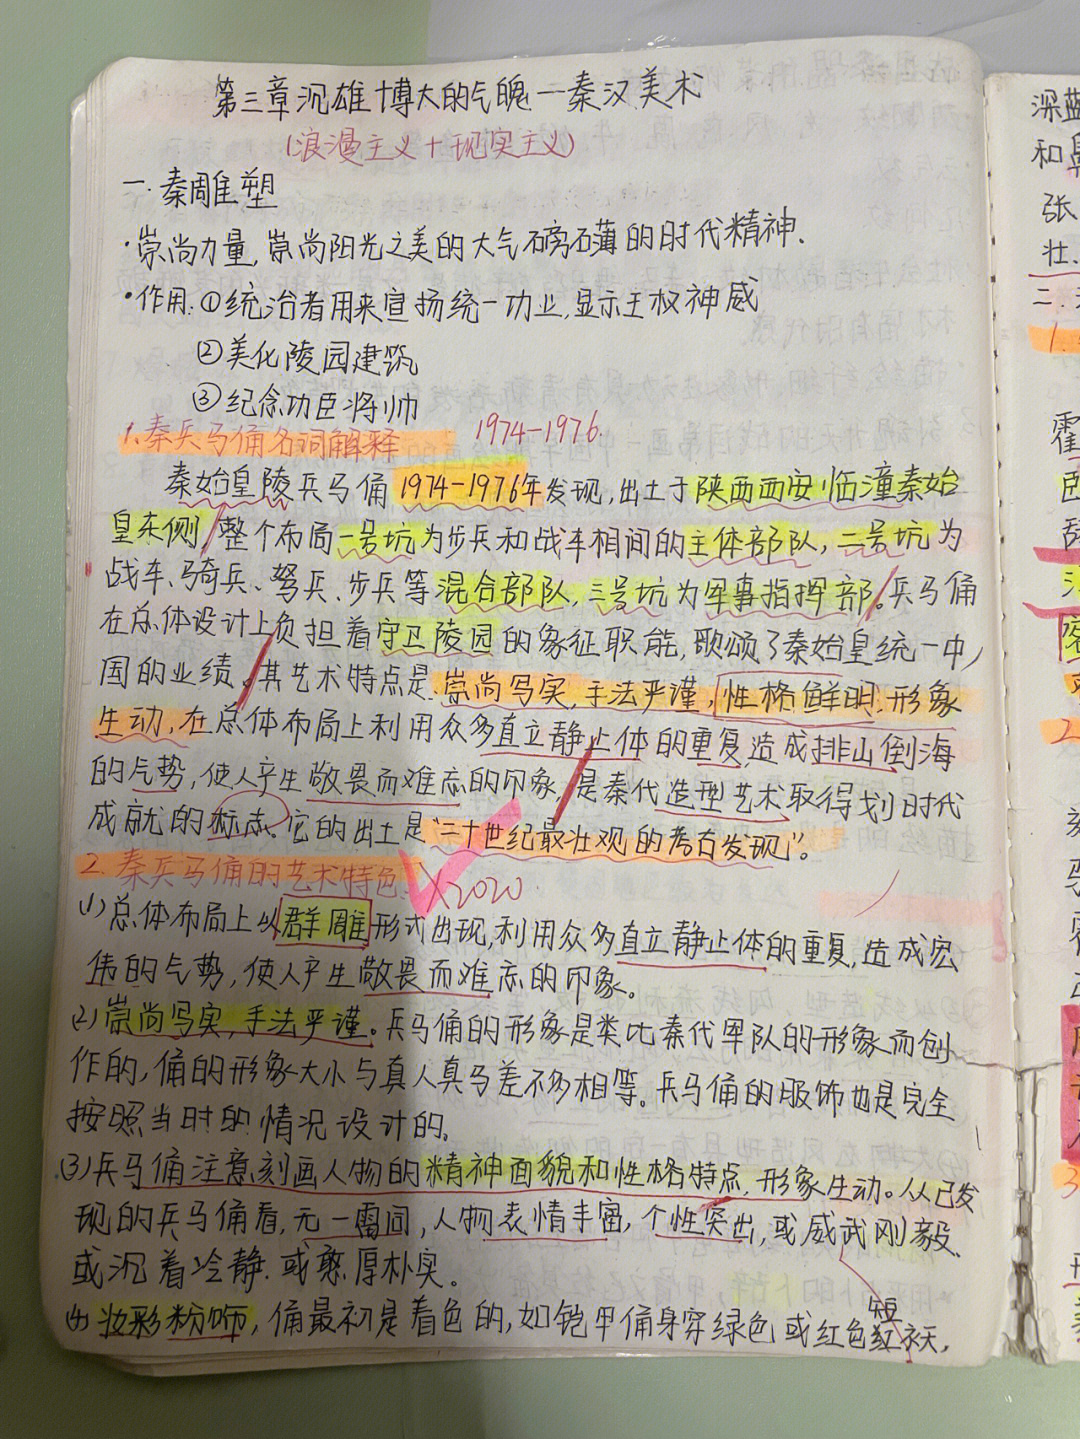 第三章沉雄博大的气魄一秦汉美术
(浪漫主义+现实主义)
一.秦雕塑
·崇尚力量,崇尚阳光之美的大气磅礴的时代精神.
·作用:①统治者用来宣扬统一功业,显示王权神威
②美化陵园建筑
③纪念功臣将帅
1.秦兵马俑名词解释 1974-1976.
秦始皇陵兵马俑1974-1976年发现,出土于陕西西安临潼秦始
皇东侧,整个布局一号坑为步兵和战车相间的主体部队,二号坑为
战车、骑兵、弩兵、步兵等混合部队,三号坑为军事指挥部。兵马俑
在总体设计上负担着守卫陵园的象征职能,歌颂了秦始皇统一中
国的业绩。其艺术特点是:崇尚写实,手法严谨,性格鲜明,形象
生动,在总体布局上利用众多直立静止体的重复,造成排山倒海
的气势,使人产生敬畏而难忘的印象,是秦代造型艺术取得划时代
成就的标志。它的出土是“二十世纪最壮观的考古发现”。
2.秦兵马俑的艺术特色. 2020.
(1)总体布局上以群雕形式出现,利用众多直立静止体的重复,造成宏
伟的气势,使人产生敬畏而难忘的印象。
(2)崇尚写实,手法严谨。兵马俑的形象是类比秦代军队的形象而创
作的,俑的形象大小与真人真马差不多相等。兵马俑的服饰也是完全
按照当时的情况设计的。
(3)兵马俑注意刻画人物的精神面貌和性格特点,形象生动。从已发
现的兵马俑看,无一雷同,人物表情丰富,个性突出,或威武刚毅、
或沉着冷静.或憨厚朴实。
(4)妆彩粉饰,俑最初是着色的,如铠甲俑身穿绿色或红色短衣,
深蓝
和
张
壮.
二.
1.
霍
2.
3